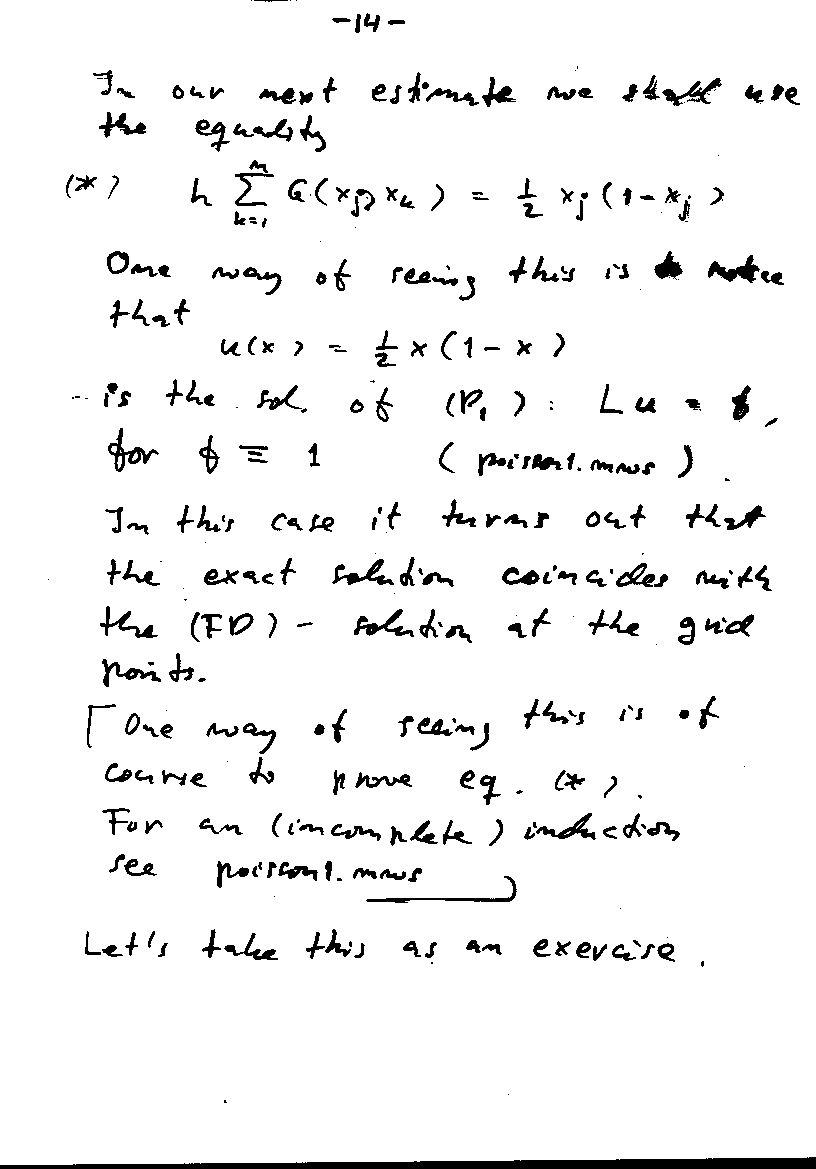 -14-
In our next estimate we shall use
the equality
(*) h ∑_{k=1}^{n} G(x_j, x_k) = 1/2 x_j (1 - x_j)
One way of seeing this is to notice
that
u(x) = 1/2 x (1 - x)
is the sol. of (P_1): Lu = f,
for f ≡ 1 (poisson1.mws).
In this case it turns out that
the exact solution coincides with
the (FD)-solution at the grid
points.
⌈One way of seeing this is of
course to prove eq. (*).
For an (incomplete) induction
see poisson1.mws ⌋
Let's take this as an exercise.